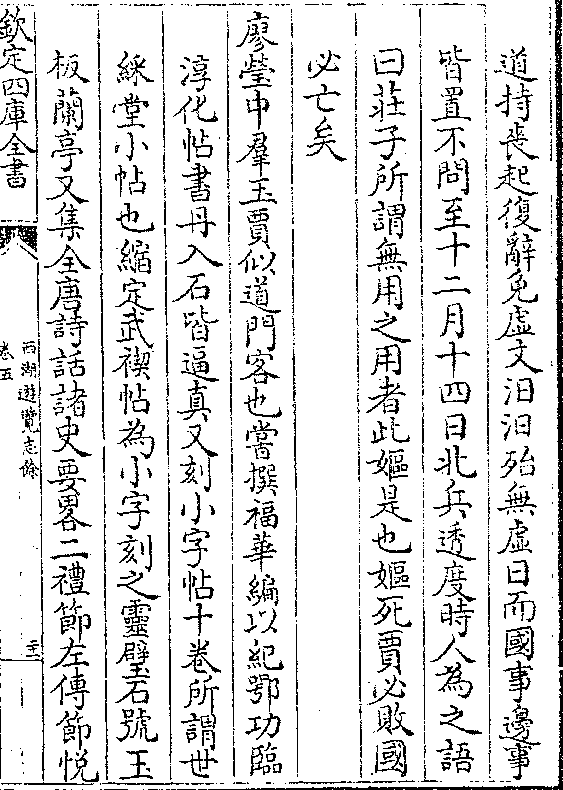 道持喪起復辭免虛文汨汨殆無虛日而國事邊事
皆置不問至十二月十四日北兵透度時人為之語
曰莊子所謂無用之用者此嫗是也嫗死賈必敗國
必亡矣
廖瑩中羣玉賈似道門客也嘗撰福華編以紀鄂功臨
淳化帖書丹入石皆逼真又刻小字帖十卷所謂世
綵堂小帖也縮定武禊帖為小字刻之靈壁石號玉
板蘭亭又集全唐詩話諸史要畧二禮節左傳節悦
欽定四庫全書
西湖遊覽志餘
卷五